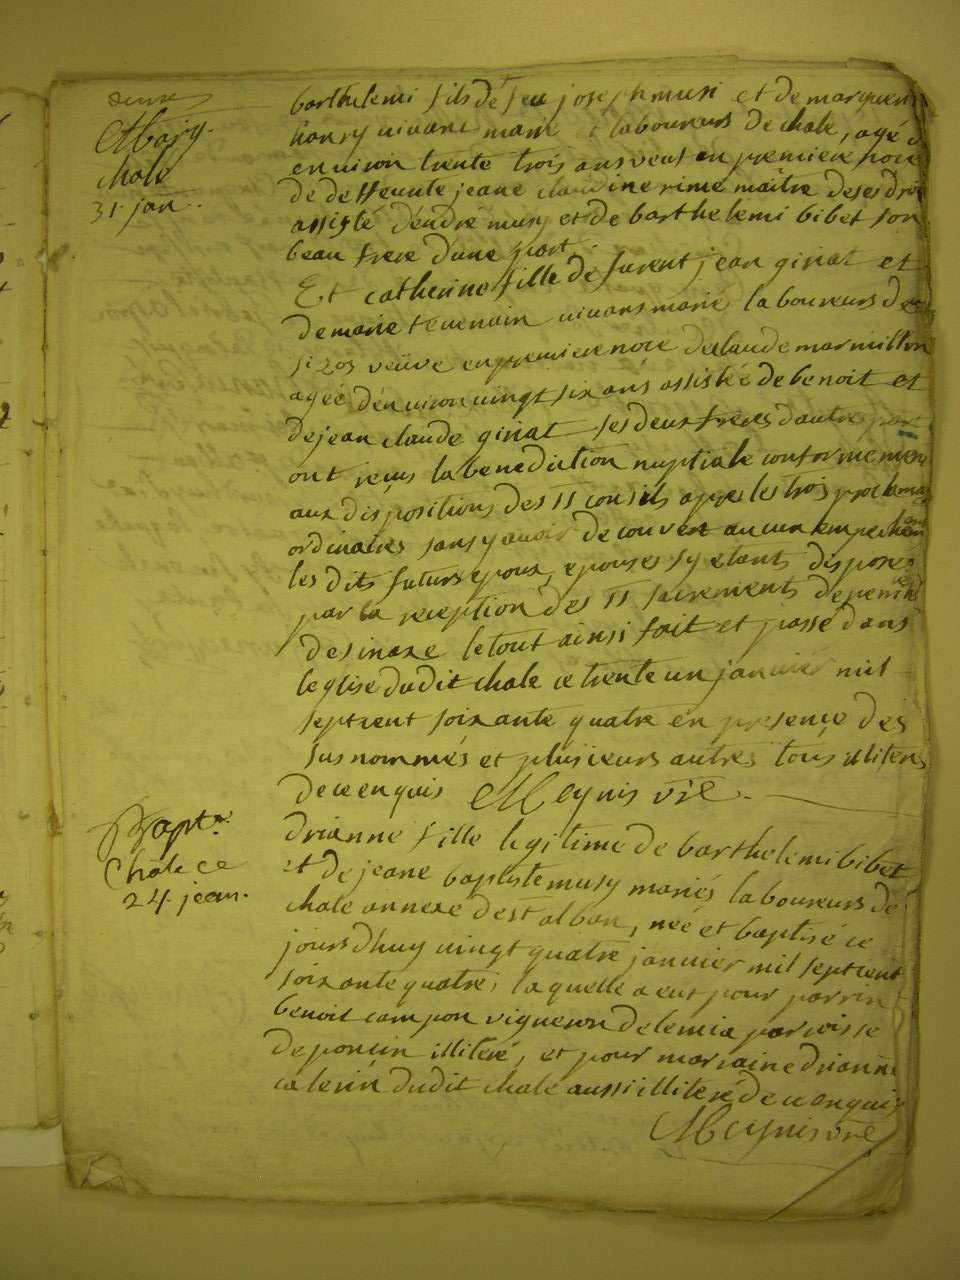 Mariag.
chale
31. jan.
barthelemi fils de feu joseph musi et de
vivant marié laboureurs de chale, agé
environ trente trois ans veuf en premiere noce
de deffeunte jeane claudine rime maitre de ses droi
assisté d'endré musy et de barthelemi bibet son
beau frere d'une part.
Et catherine fille de furent jean giriat et
de marie tevenain vivans marié laboureurs de
veuve en premiere noce de claude marmillon
agée d'environ vingt six ans assistée de benoit et
de jean claude giriat ses deux freres d'autre part
ont reçus la benediction nuptiale conformement
aux dispositions des SS consils apprè les trois proclamas
ordinaires sans y avoir decouvert aucun empechem
les dits futurs epoux, epouses sy etant disposes
par la reception des SS sacrements de penite
desinaxe le tout ainsi fait et passé dans
leglise dudit chale ce trente un janvier mil
septcent soixante quatre en presence des
sus nommés et plusieurs autres tous illiteres
de ce enquis Meynis vre
Bapt.
Chale ce
24. jean.
drianne fille legitime de barthelemi bibet
et de jeane baptiste musy mariés laboureurs de
chale annexe de st alban, née et baptisé ce
jours dhuy vingt quatre janvier mil septcent
soixante quatre, laquelle a eut pour parrin
benoit campon vigneron de lemia parroisse
de poncin illiteré, et pour marraine drianne
calerin dudit chale aussi illiteré de ce enquis
Meynis vre